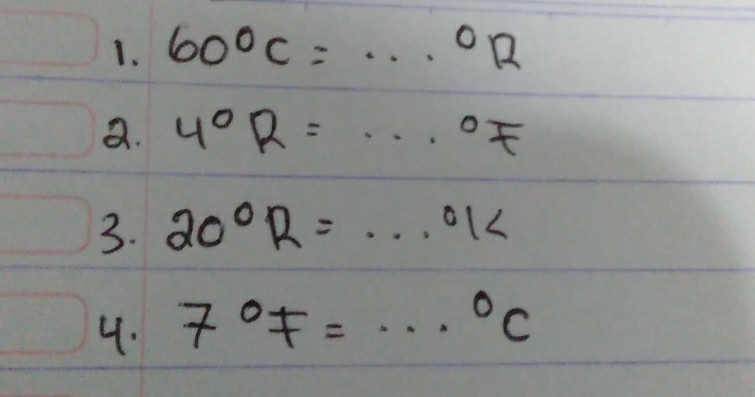 1. 60°C = .... °R
2. 4° R = .... °F
3. 20°R = .... °K
4. 7 °F = .... °C